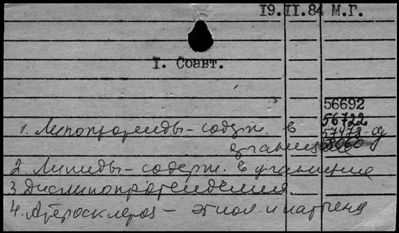 19.II.84 М.Г.
I. Соавт.
56692
56722
57478
1. Липопротеиды – содерж. в
2. Липиды – содерж. в
3. Дислипопротеидемия
4. Атеросклероз – этиол. и патогенез